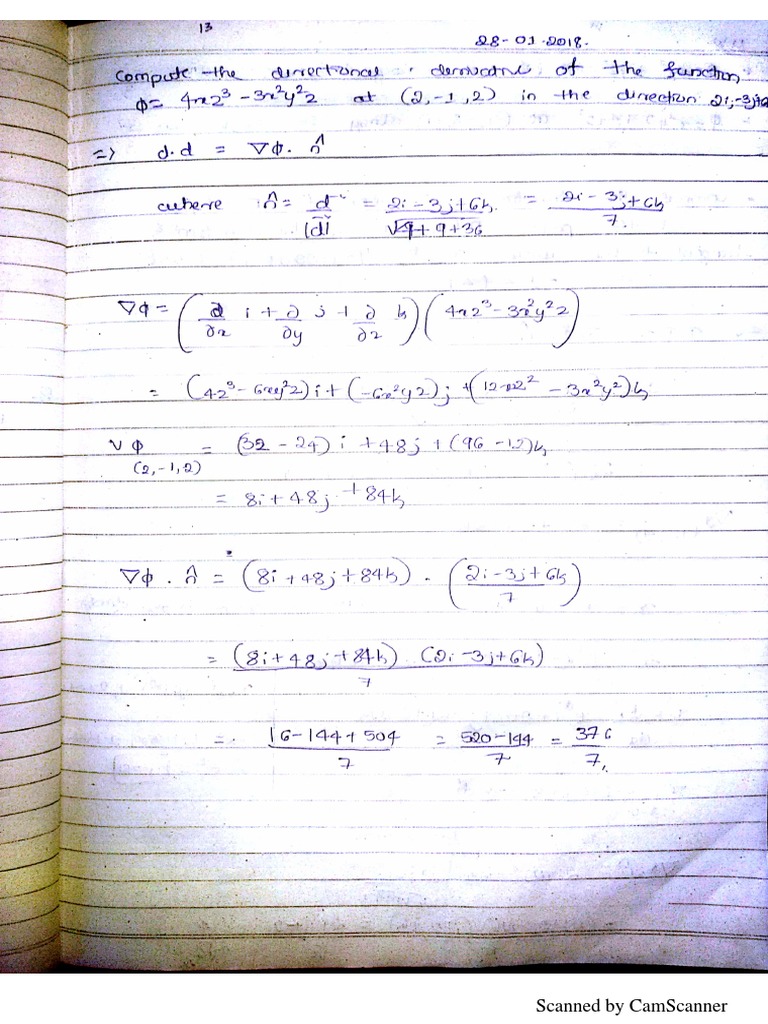 13
28-01-2018.
Compute the directional derivative of the function
φ = 4xz³ - 3x²y²z at (2,-1,2) in the direction 2i-3j+6
=> d.d = ∇φ. n̂
where n̂ = d/|d| = (2i-3j+6k)/√(4+9+36) = (2i-3j+6k)/7.
∇φ = (∂/∂x i + ∂/∂y j + ∂/∂z k)(4xz³-3x²y²z)
= (4z³-6xy²z)i + (-6x²yz)j + (12xz² - 3x²y²)k
∇φ = (32-24)i + 48j + (96-12)k
(2,-1,2)
= 8i + 48j + 84k
∇φ . n̂ = (8i+48j+84k) . ((2i-3j+6k)/7)
= (8i+48j+84k) (2i-3j+6k)/7
= (16-144+504)/7 = (520-144)/7 = 376/7.
Scanned by CamScanner